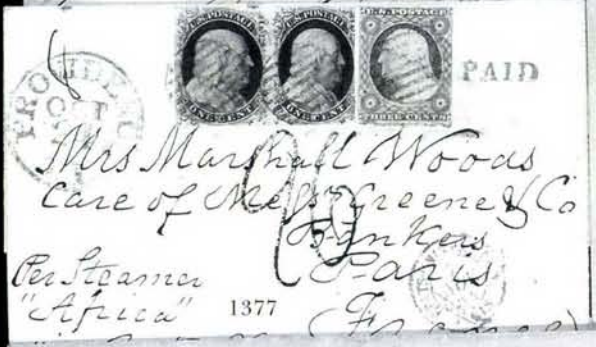 U.S. POSTAGE
ONE CENT
U.S. POSTAGE
ONE CENT
U.S. POSTAGE
THREE CENTS
PAID
OCT
Mrs Marshall Woods
Care of Messrs Greene & Co
Bankers
Paris
(France)
Per Steamer
"Africa"
1377